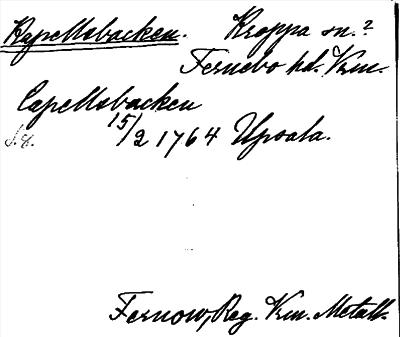 Kapellsbacken. Kroppa sn.?
Fernebo hd. Vrm.
Capellsbacken
15/2 1764 Upsala.
Fernow, Reg. Vrm. Metall.